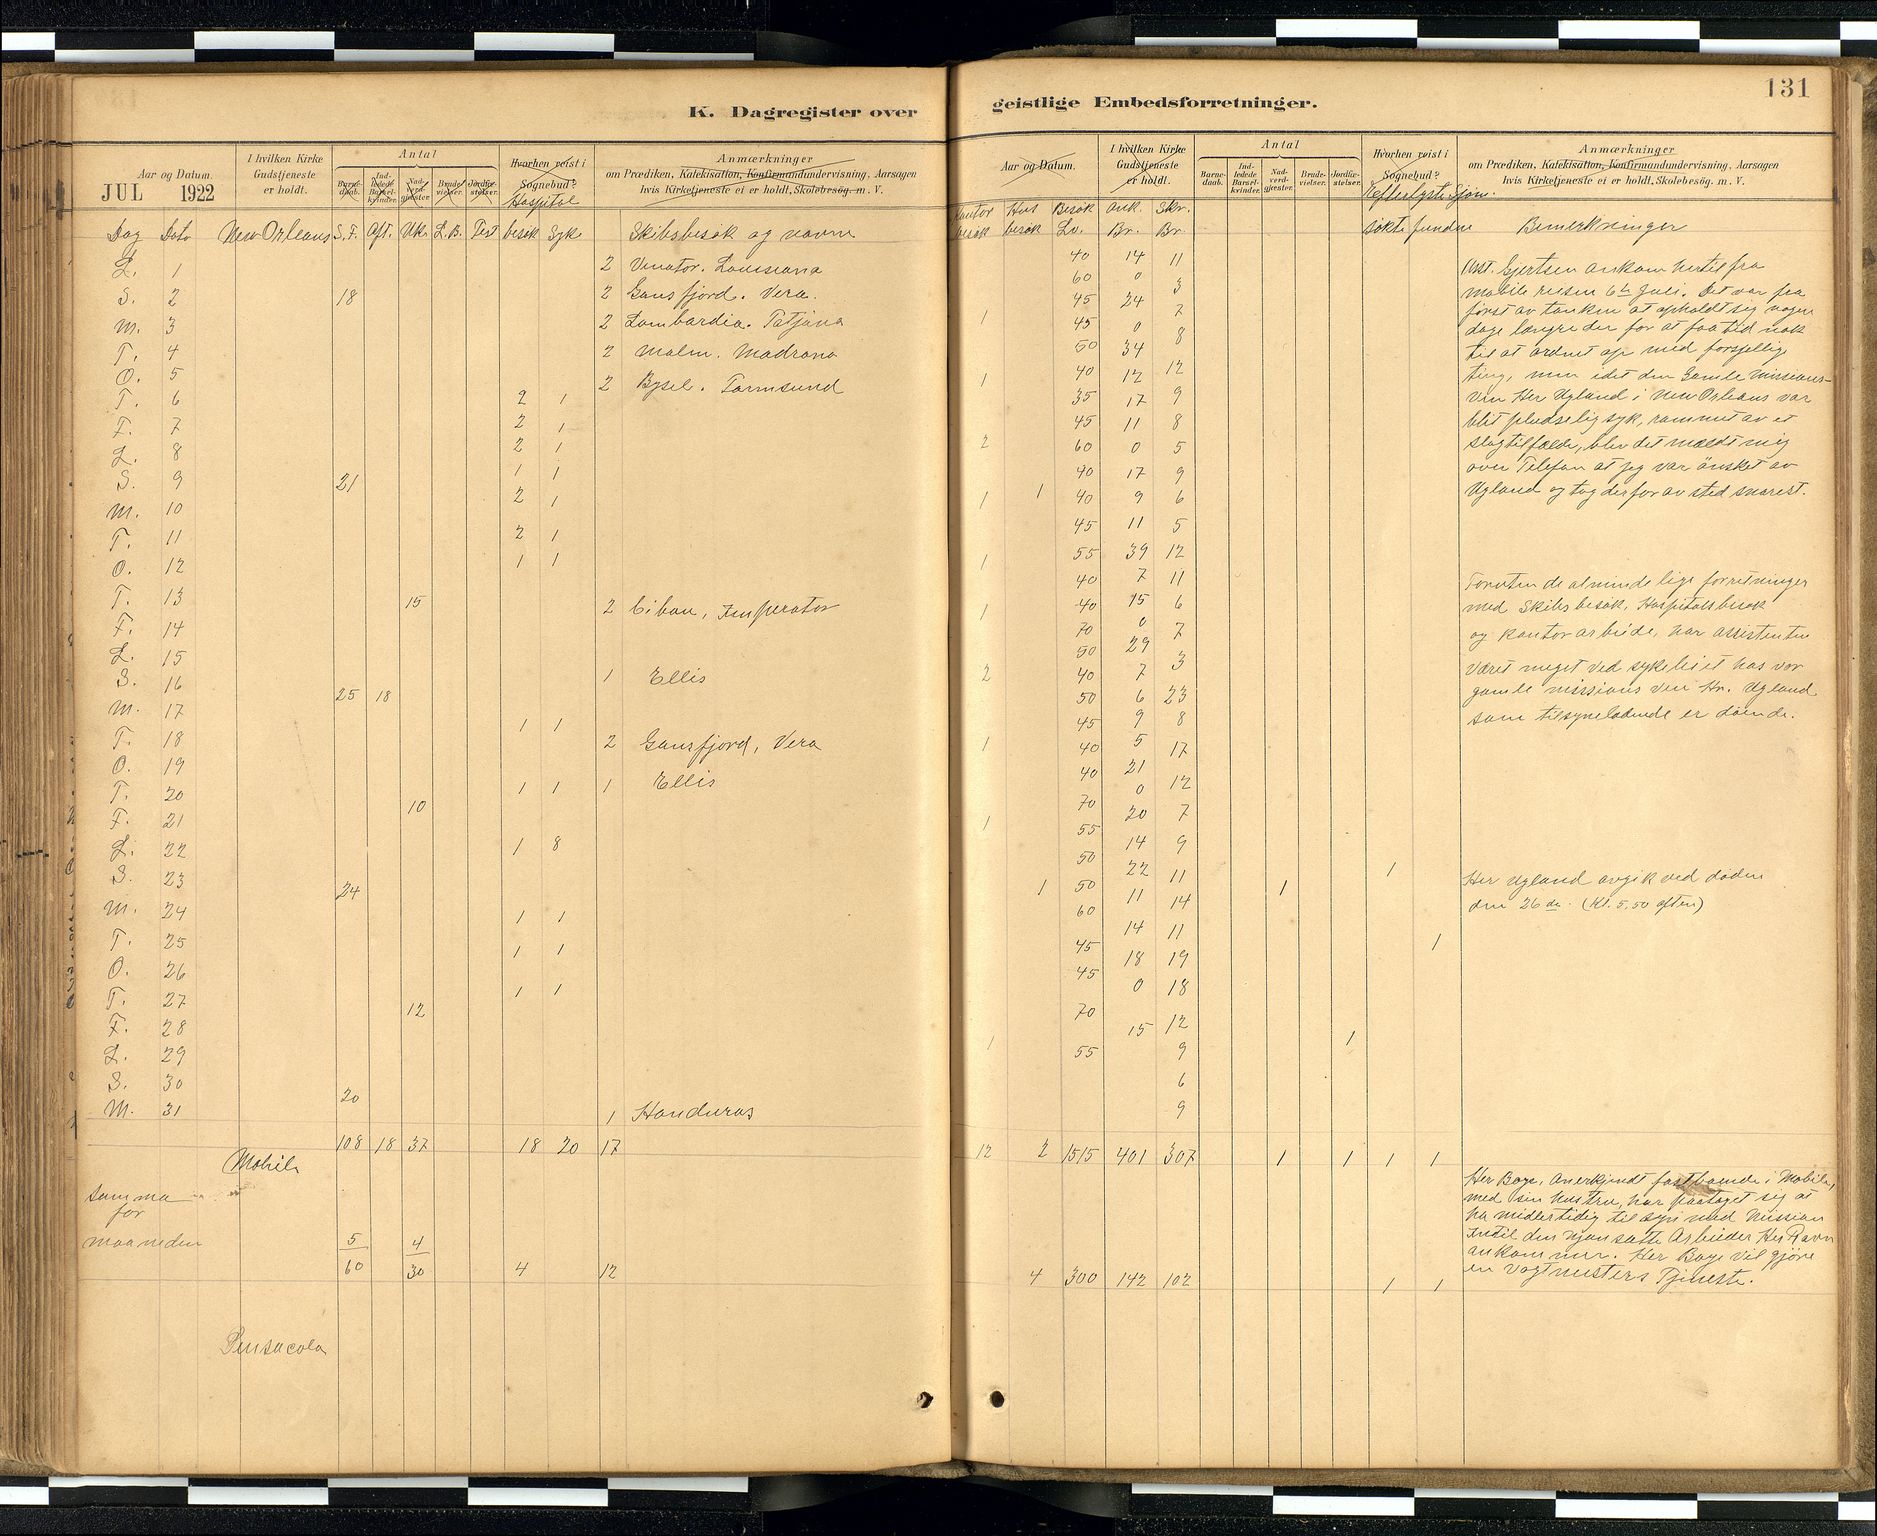 K. Dagregister over geistlige Embedsforretninger.
131
Aar og Datum.
JUL 1922
I hvilken Kirke Gudstjeneste er holdt.
Antal
Barne-daab.
Ind-ledede Barsel-kvinder.
Nad-verd-gjester.
Brude-vielser.
Jordfæ-stelser.
Hvorhen reist i Sognebud?
Hospital
Anmærkninger
om Prædiken, Katekisation, Konfirmandundervisning, Aarsagen
hvis Kirketjeneste ei er holdt, Skolebesøg. m. V.
Dag Dato New Orleans S.F. Aft. Uke L.B. Fest besøk Syke Skibsbesøk og navne
L. 1 2 Venator. Louisiana
S. 2 18 2 Gansfjord. Vera.
M. 3 2 Lombardia. Tatjana
T. 4 2 Malm. Madrono
O. 5 2 Bysel. Tarmsund
T. 6 2 1
F. 7 2 1
L. 8 2 1
S. 9 21 1 1
M. 10 2 1
T. 11 2 1
O. 12 1 1
T. 13 15 2 Ciban, Imperator
F. 14
L. 15
S. 16 25 18 1 Ellis
M. 17 1 1
T. 18 2 Gansfjord, Vera
O. 19
T. 20 10 1 1 1 Ellis
F. 21
L. 22 1 8
S. 23 24
M. 24 1 1
T. 25 1 1
O. 26 1 1
T. 27 12
F. 28
L. 29
S. 30 20
M. 31 1 Honduras
108 18 37 18 20 17
Mobile
samma
for
maaneden 5 4
60 30 4 12
Pensacola
Aar og Datum.
I hvilken Kirke Gudstjeneste er holdt.
Antal
Barne-daab.
Ind-ledede Barsel-kvinder.
Nad-verd-gjester.
Brude-vielser.
Jordfæ-stelser.
Hvorhen reist i Sognebud?
Efterlyste Sjøm.
Anmærkninger
om Prædiken, Katekisation, Konfirmandundervisning, Aarsagen
hvis Kirketjeneste ei er holdt, Skolebesøg. m. V.
Kontor Hus Besøk Ank. Skr.
besøk besøk Lv. Br. Br. søkte fundne Bemerkninger
40 14 11
60 0 3
1 45 24 7
45 0 8
50 34
1 40 12 12
35 17 9
45 11 8
2 60 0 5
40 17 9
1 1 40 9 6
45 11 5
1 55 39 12
40 7 11
1 40 15 6
70 0 7
50 29 3
2 40 7
50 6 23
45 9 8
1 40 5 17
40 21
0 12
1 70 20 7
55 14 9
50 22 11 1
1 50 11 14 1
60 14 11
45 18 19 1
45 0 18
70 15 12
1 55 9 1
6
9
12 2 1515 401 307 1 1 1 1
4 300 142 102 1 1
Asst. Gjertsen ankom hertil fra
Mobile reisen 6te Juli. Det var fra
først av tanken at opholdt sig nogen
dage længre der for at faa tid nok
til at ordnet op med forsjellige
ting, men idet den Gamle Missions-
ven Her Ugland i New Orleans var
blit pludselig syk, rammet av et
slagtilfælde, blev det mældt mig
over Telefon at jeg var ønsket av
Ugland og tog derfor av sted snarest.
Foruten de almindelige forretninger
med Skibsbesøk, Hospitalsbesøk
og kontor arbeide, har assistenten
været meget ved sykeleiet hos vor
gamle missions ven Hr. Ugland
som tilsyneladende er døende.
Her Ugland avgik ved døden
den 26 de. (Kl. 5,50 aften)
Her Boye, Anerkjendt fastboende i Mobile,
med sin hustru, har paataget sig at
ha midlertidig tilsyn med Mission
Indtil den nyansatte Arbeider Her Ravn
ankommer. Her Boye vil gjøre
en Vagtmesters Tjeneste.